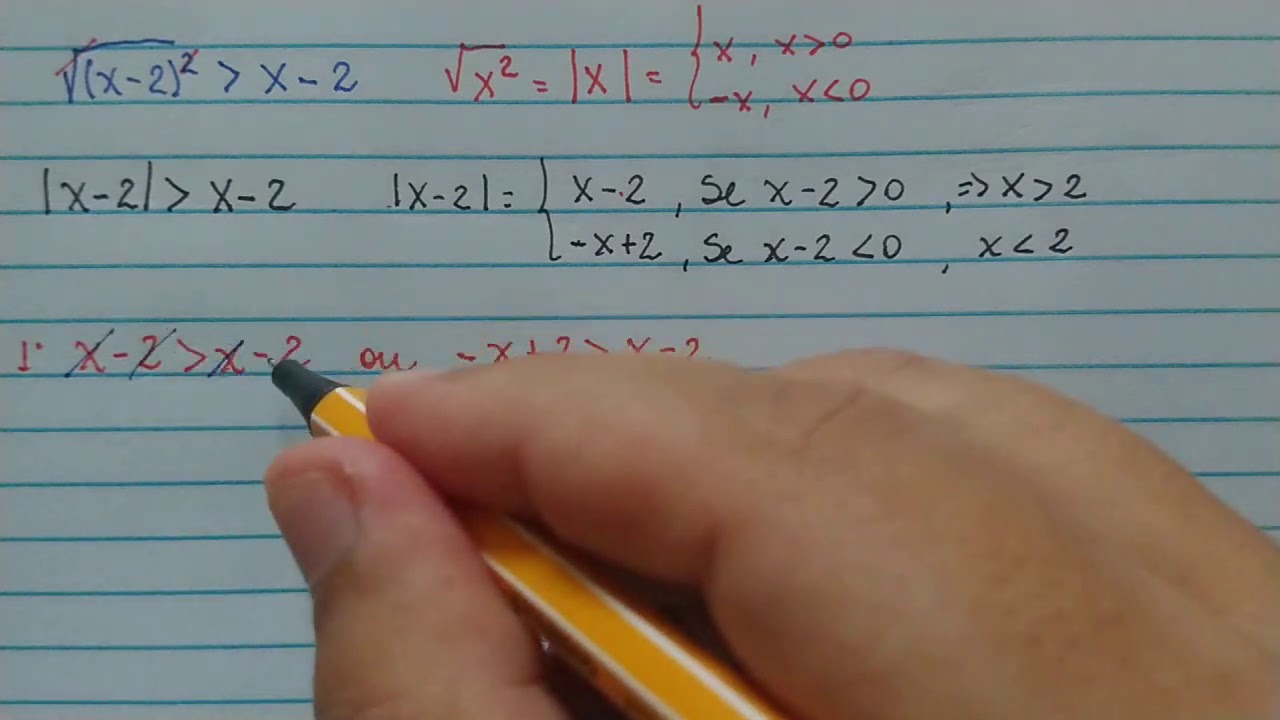 √(x-2)² > x-2 √x² = |x| = { x, x>0
-x, x<0
|x-2| > x-2 |x-2| = { x-2, Se x-2>0, ⇒ x>2
-x+2, Se x-2<0, x<2
1: x-2 > x-2 ou -x+2 > x-2